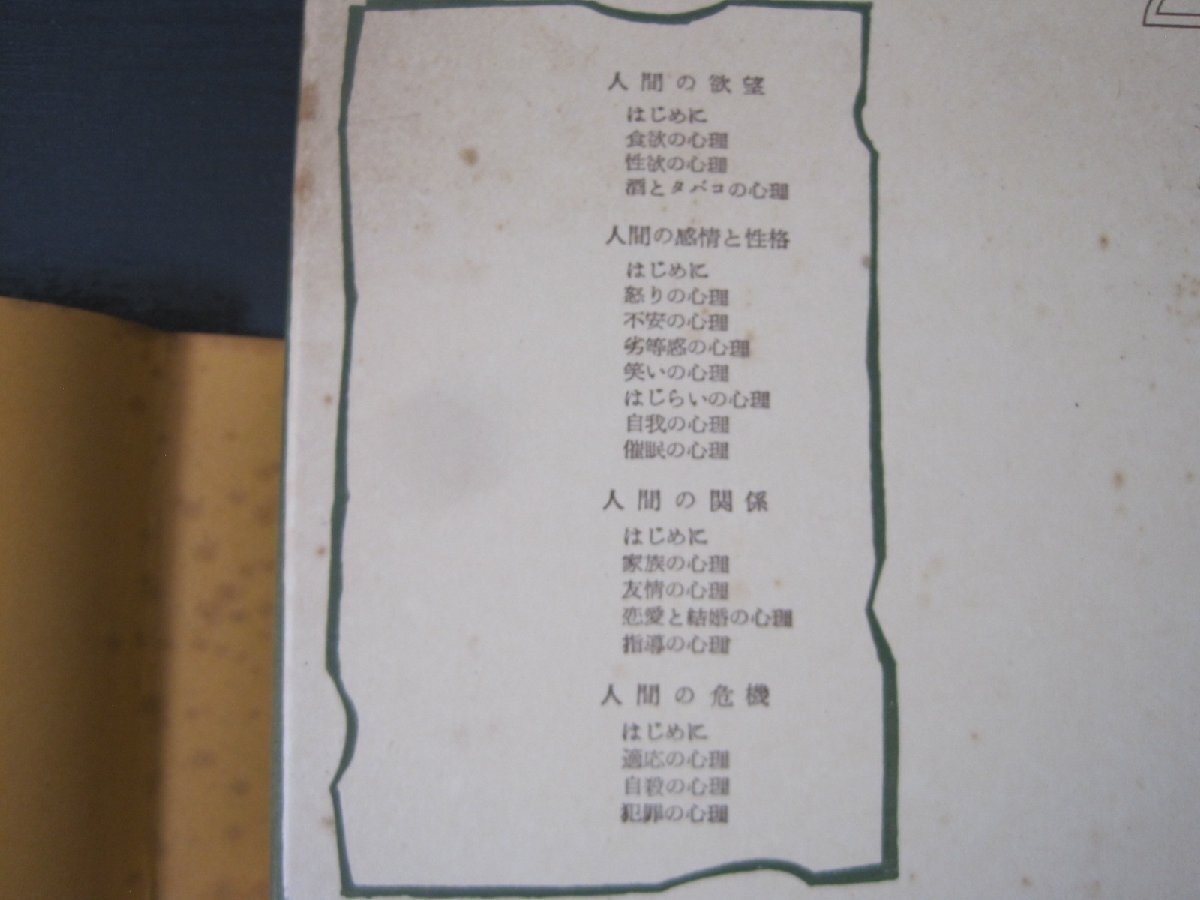 人間の欲望
はじめに
食欲の心理
性欲の心理
酒とタバコの心理
人間の感情と性格
はじめに
怒りの心理
不安の心理
劣等感の心理
笑いの心理
はじらいの心理
自我の心理
催眠の心理
人間の関係
はじめに
家族の心理
友情の心理
恋愛と結婚の心理
指導の心理
人間の危機
はじめに
適応の心理
自殺の心理
犯罪の心理